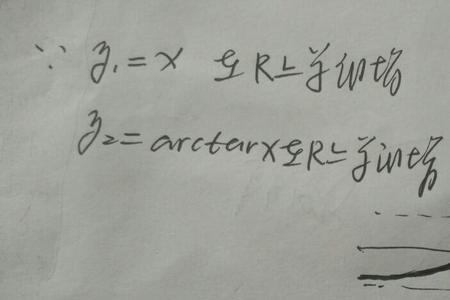 ∵ y₁=x 在R上单调增
y₂=arctanx在R上单调增